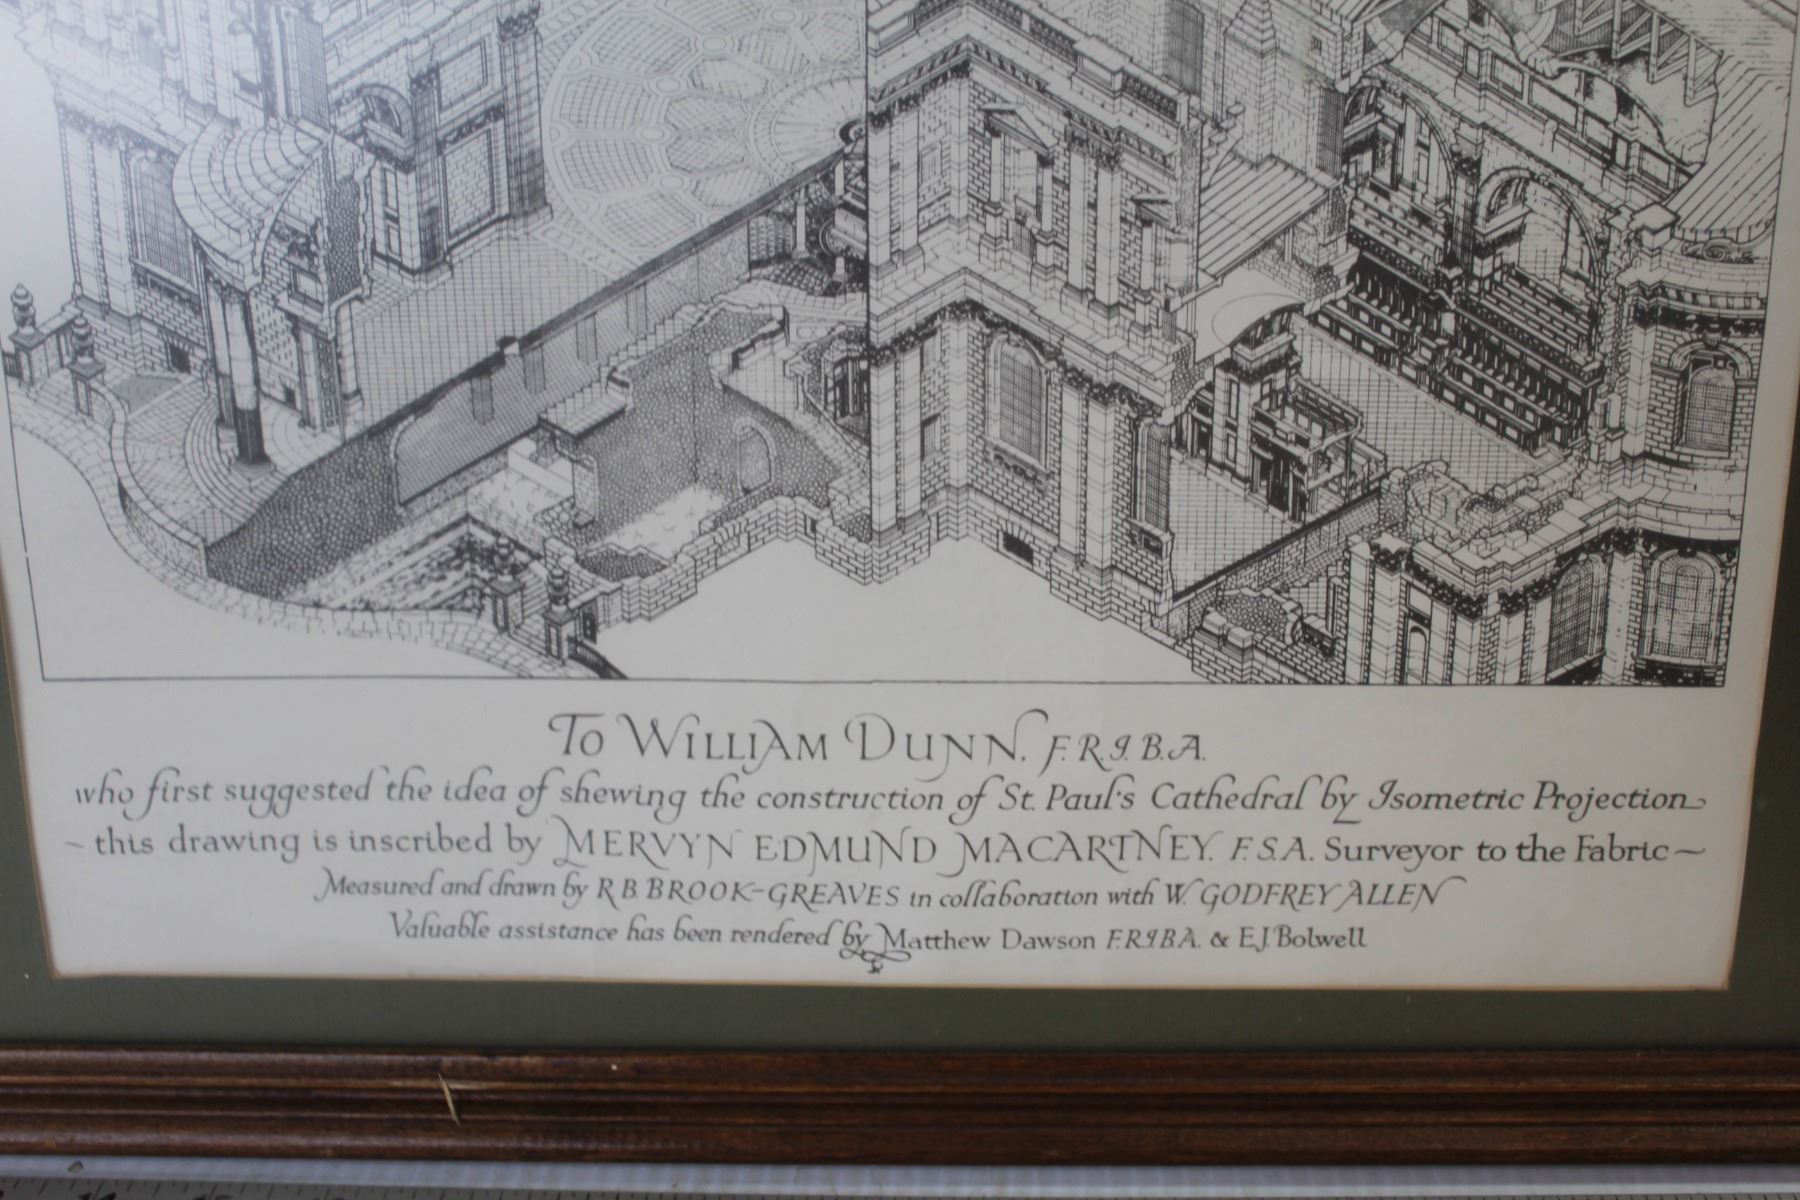 To William Dunn. F.R.I.B.A.
who first suggested the idea of shewing the construction of St. Paul's Cathedral by Isometric Projection
~ this drawing is inscribed by MERVYN EDMUND MACARTNEY. F.S.A. Surveyor to the Fabric ~
Measured and drawn by R.B. BROOK-GREAVES in collaboration with W. GODFREY ALLEN
Valuable assistance has been rendered by Matthew Dawson F.R.I.B.A. & E.J. Bolwell